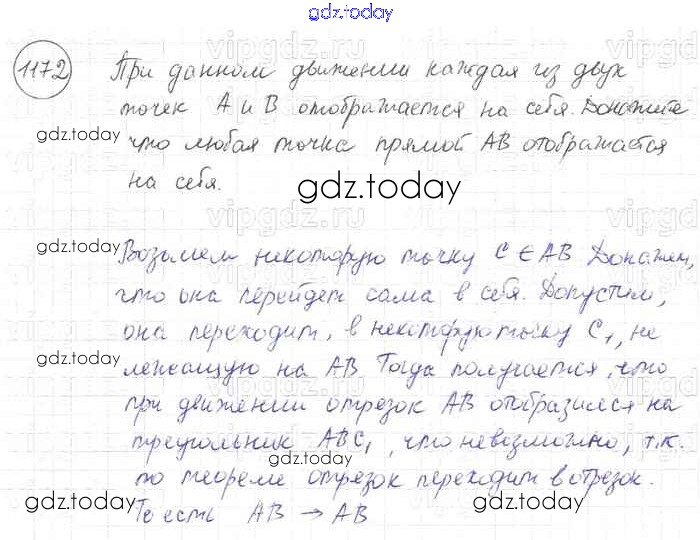 gdz.today
1172 При данном движении каждая из двух
точек А и В отображается на себя. Докажите
gdz.today
что любая точка прямой АВ отображается
на себя.
gdz.today
gdz.today
Возьмем некоторую точку С ∈ АВ Докажем,
что она перейдет сама в себя. Допустим,
она переходит, в некоторую точку С₁, не
gdz.today
лежащую на АВ Тогда получается, что
при движении отрезок АВ отобразился на
треугольник АВС₁, что невозможно, т.к.
gdz.today
по теореме отрезок переходит в отрезок.
gdz.today
gdz.today
То есть АВ → АВ